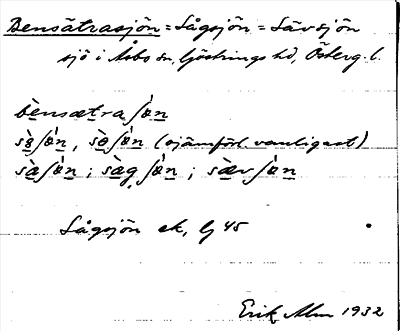 Bensätrasjön = Sågsjön = Sävsjön
sjö i Åsbo sn, Göstrings hd, Österg. l.
bènsætraʃœ̀n
sɔ̀ʃœ̀n, sɔ̀ʃœ̀n (ojämförl. vanligast)
sæ̀ʃœ̀n ; sæ̀gʃœ̀n ; sæ̀vʃœ̀n
Sågsjön ek, G 45
Erik Alm 1932